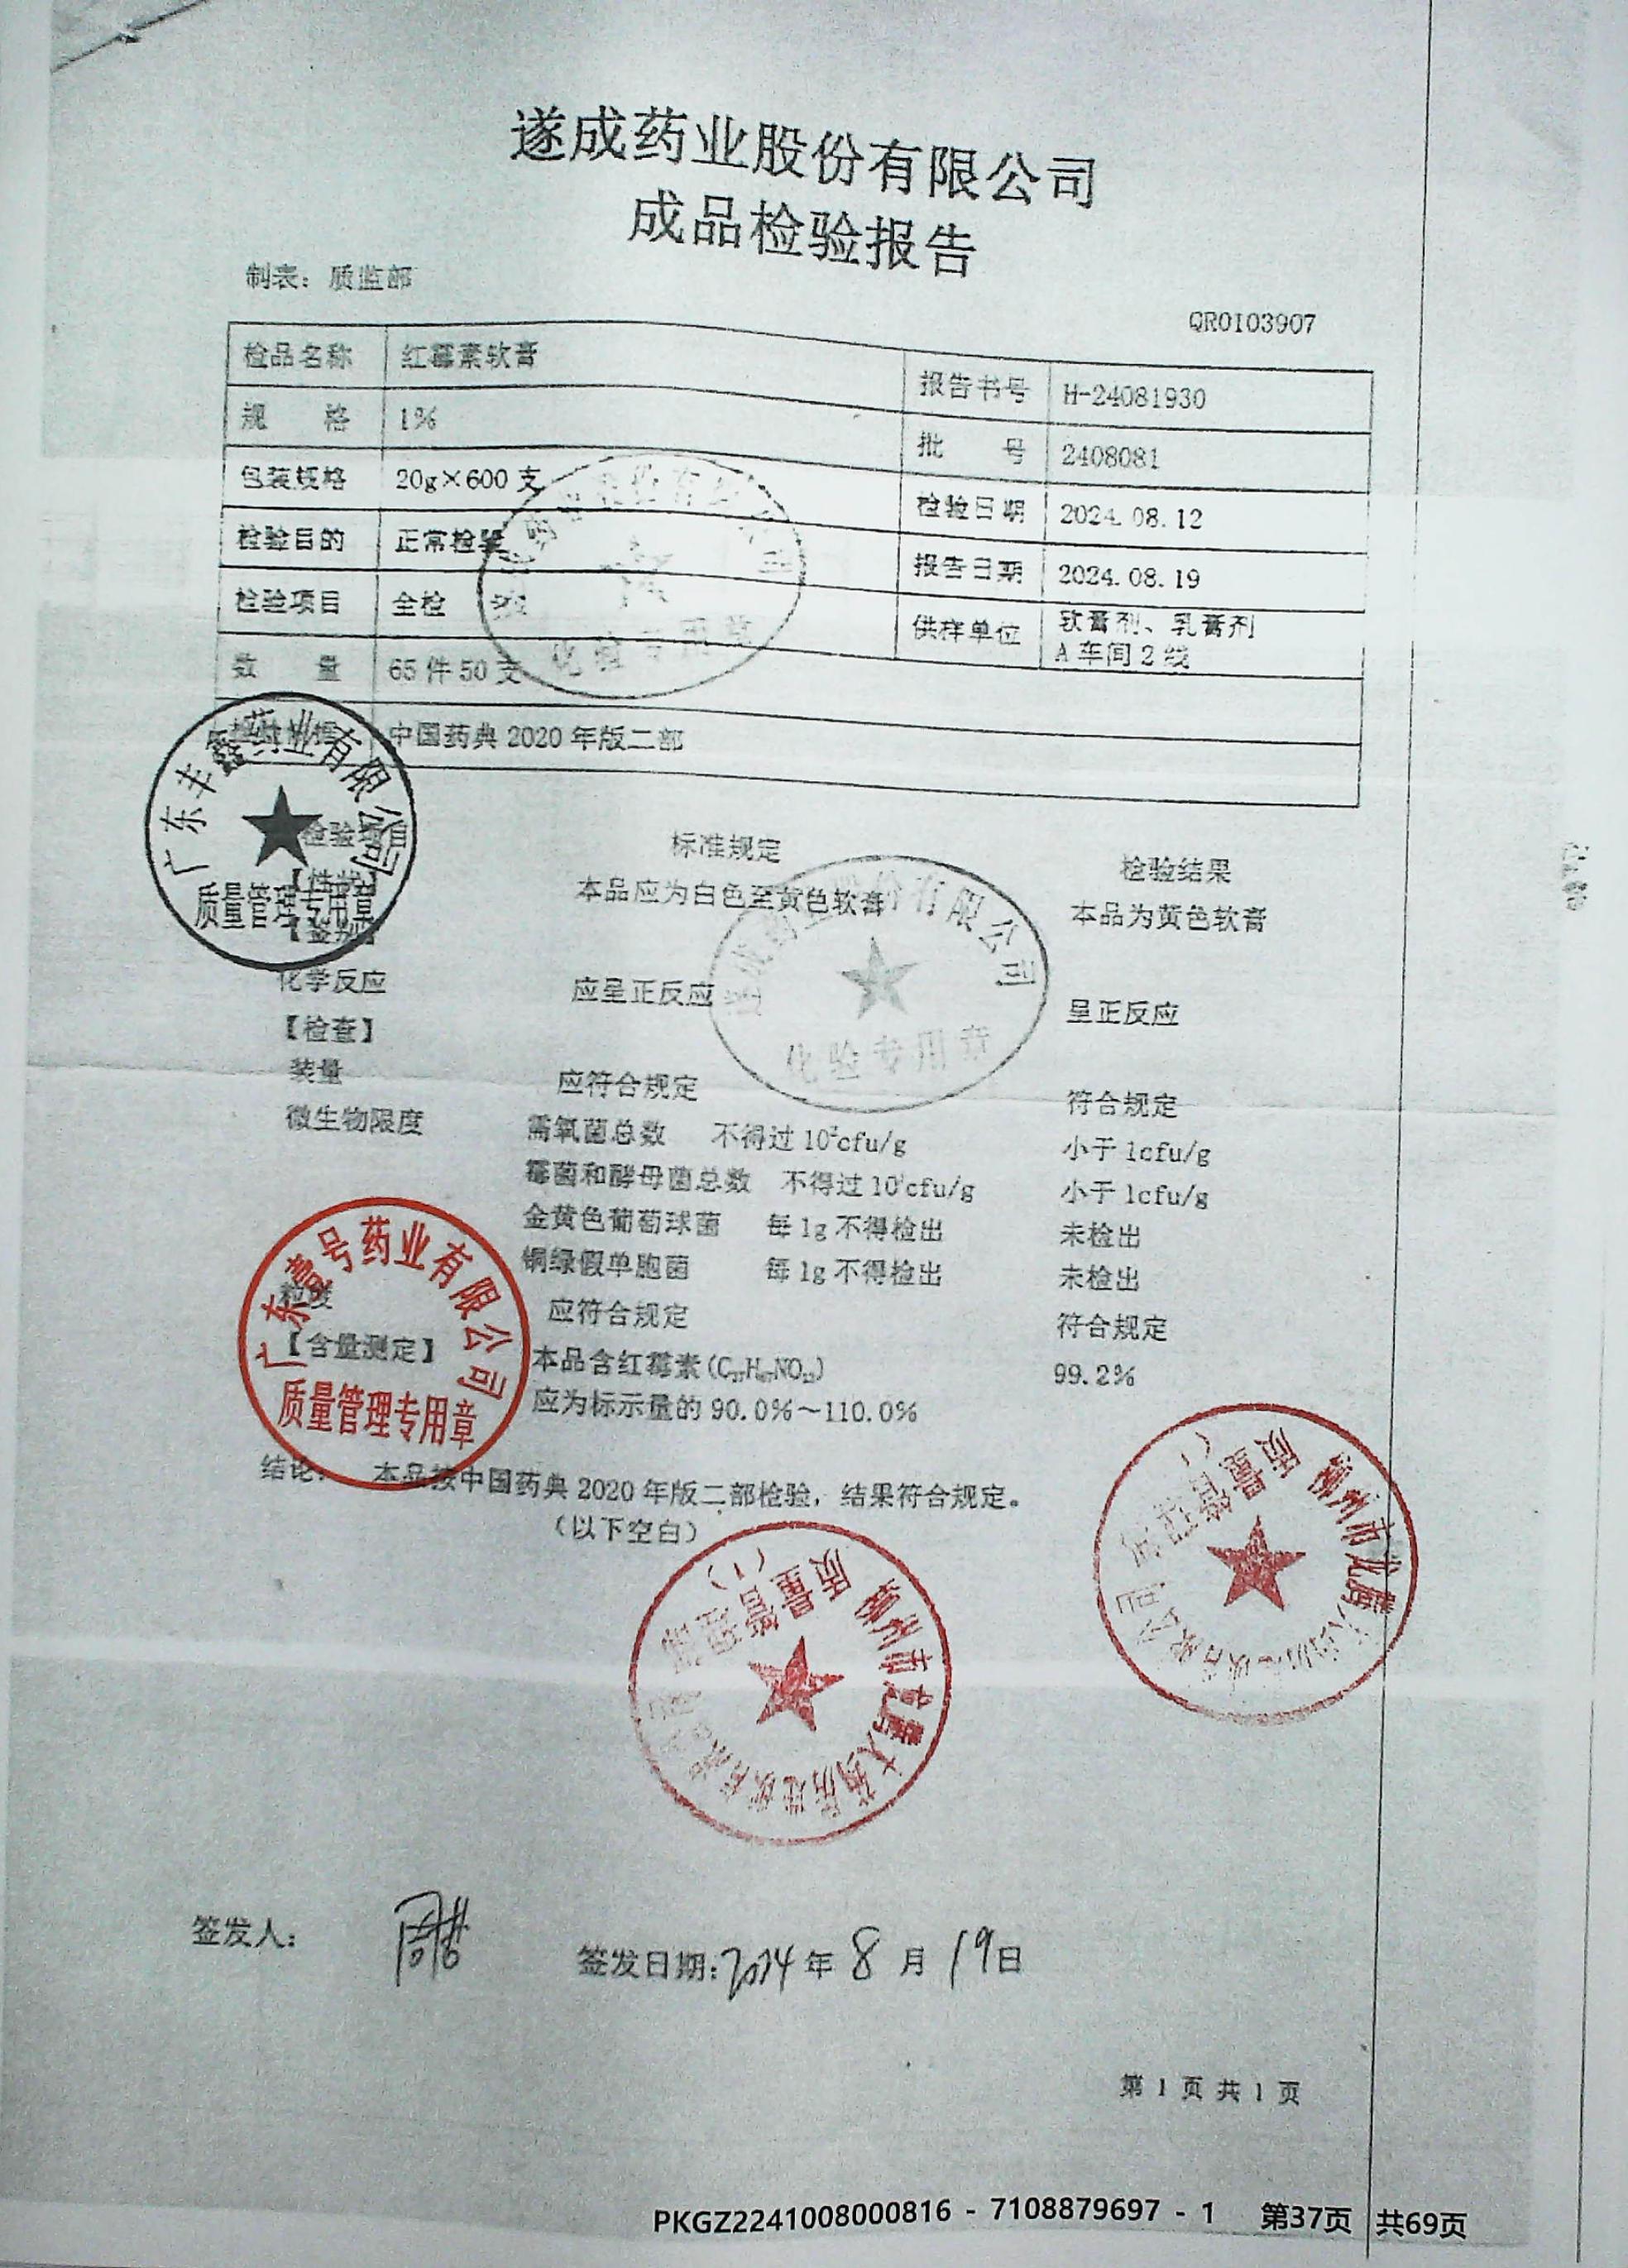 遂成药业股份有限公司
成品检验报告
制表：质监部
QR0103907
检品名称 红霉素软膏 报告书号 H-24081930
规 格 1% 批 号 2408081
包装规格 20g×600支 检验日期 2024.08.12
检验目的 正常检验 报告日期 2024.08.19
检验项目 全检 供样单位 软膏剂、乳膏剂
A车间2线
数 量 65件50支
中国药典2020年版二部
广东丰鑫药业有限公司
质量管理专用章
检验项目 标准规定 检验结果
【性状】 本品应为白色至黄色软膏 本品为黄色软膏
【鉴别】
化学反应 应呈正反应 呈正反应
成药业股份有限公司
化验专用章
【检查】
装量 应符合规定 符合规定
微生物限度 需氧菌总数 不得过10²cfu/g 小于1cfu/g
霉菌和酵母菌总数 不得过10¹cfu/g 小于1cfu/g
金黄色葡萄球菌 每1g不得检出 未检出
铜绿假单胞菌 每1g不得检出 未检出
粒度 应符合规定 符合规定
【含量测定】 本品含红霉素(C₃₇H₆₇NO₁₃) 99.2%
应为标示量的90.0%～110.0%
广东壹号药业有限公司
质量管理专用章
结论： 本品按中国药典2020年版二部检验，结果符合规定。
（以下空白）
柳州市龙腾大药房连锁有限公司
质量管理章
签发人：
签发日期:2024年8月19日
第1页共1页
PKGZ2241008000816 - 7108879697 - 1 第37页 共69页